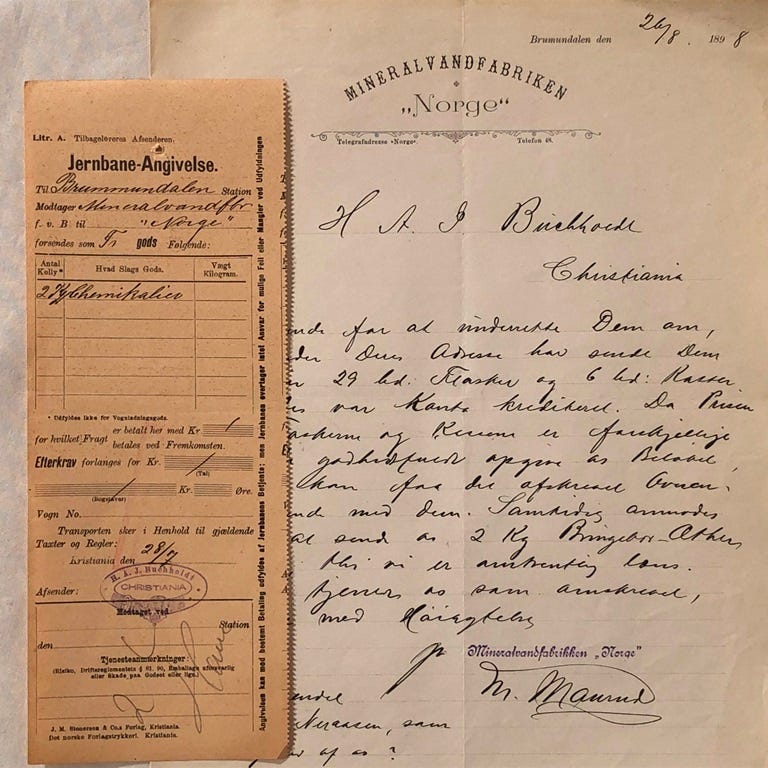 Litr. A. Tilbageleveres Afsenderen.
Jernbane-Angivelse.
Til Brummundalen Station
Modtager Mineralvandfbr
f. v. B. til "Norge"
forsendes som Fr gods Følgende:
Antal Kolly* Hvad Slags Gods. Vægt Kilogram.
2 Chemikalier
* Udfyldes ikke for Vognladningsgods.
er betalt her med Kr
for hvilket Fragt
betales ved Fremkomsten.
Efterkrav forlanges for Kr.
(Tal)
Kr. Øre.
(Bogstaver)
Vogn No.
Transporten sker i Henhold til gjældende
Taxter og Regler.
Kristiania den 28/7
H. A. J. Buchholdt
CHRISTIANIA
Afsender:
Modtaget ved
Station
den
Tjenesteanmærkninger
(Risiko, Driftsreglementets § 61. 90, Emballage uforsvarlig
eller Skade paa Godset eller lign.)
J. M. Stenersen & Co.s Forlag, Kristiania.
Det norske Forlagstrykkeri. Kristiania.
Angivelsen kan mod bestemt Betaling udfyldes af Jernbanens Betjente; men Jernbanen overtager intet Ansvar for mulige Feil eller Mangler ved Udfyldningen
Brumundalen den 26/8. 1898
MINERALVANDFABRIKEN
„Norge“
Telegrafadresse »Norge«. Telefon 48.
H A J Buchholdt
Christiania
for at underrette Dem om,
Deres Adresse har sendt Dem
29 Flasker og 6 Kasser
var Konto krediteret. Da Prisen
og Kasserne er forskjellige
godhedsfuldt opgive os Beløbet,
kan faa det afskrevet Overen-
med dem. Samtidig anmodes
at sende os 2 Kg Bringebær-Æther
vi er
tjener os som
med Høiagtelse
pr Mineralvandfabrikken „Norge“
M. Maurud
som
af os?